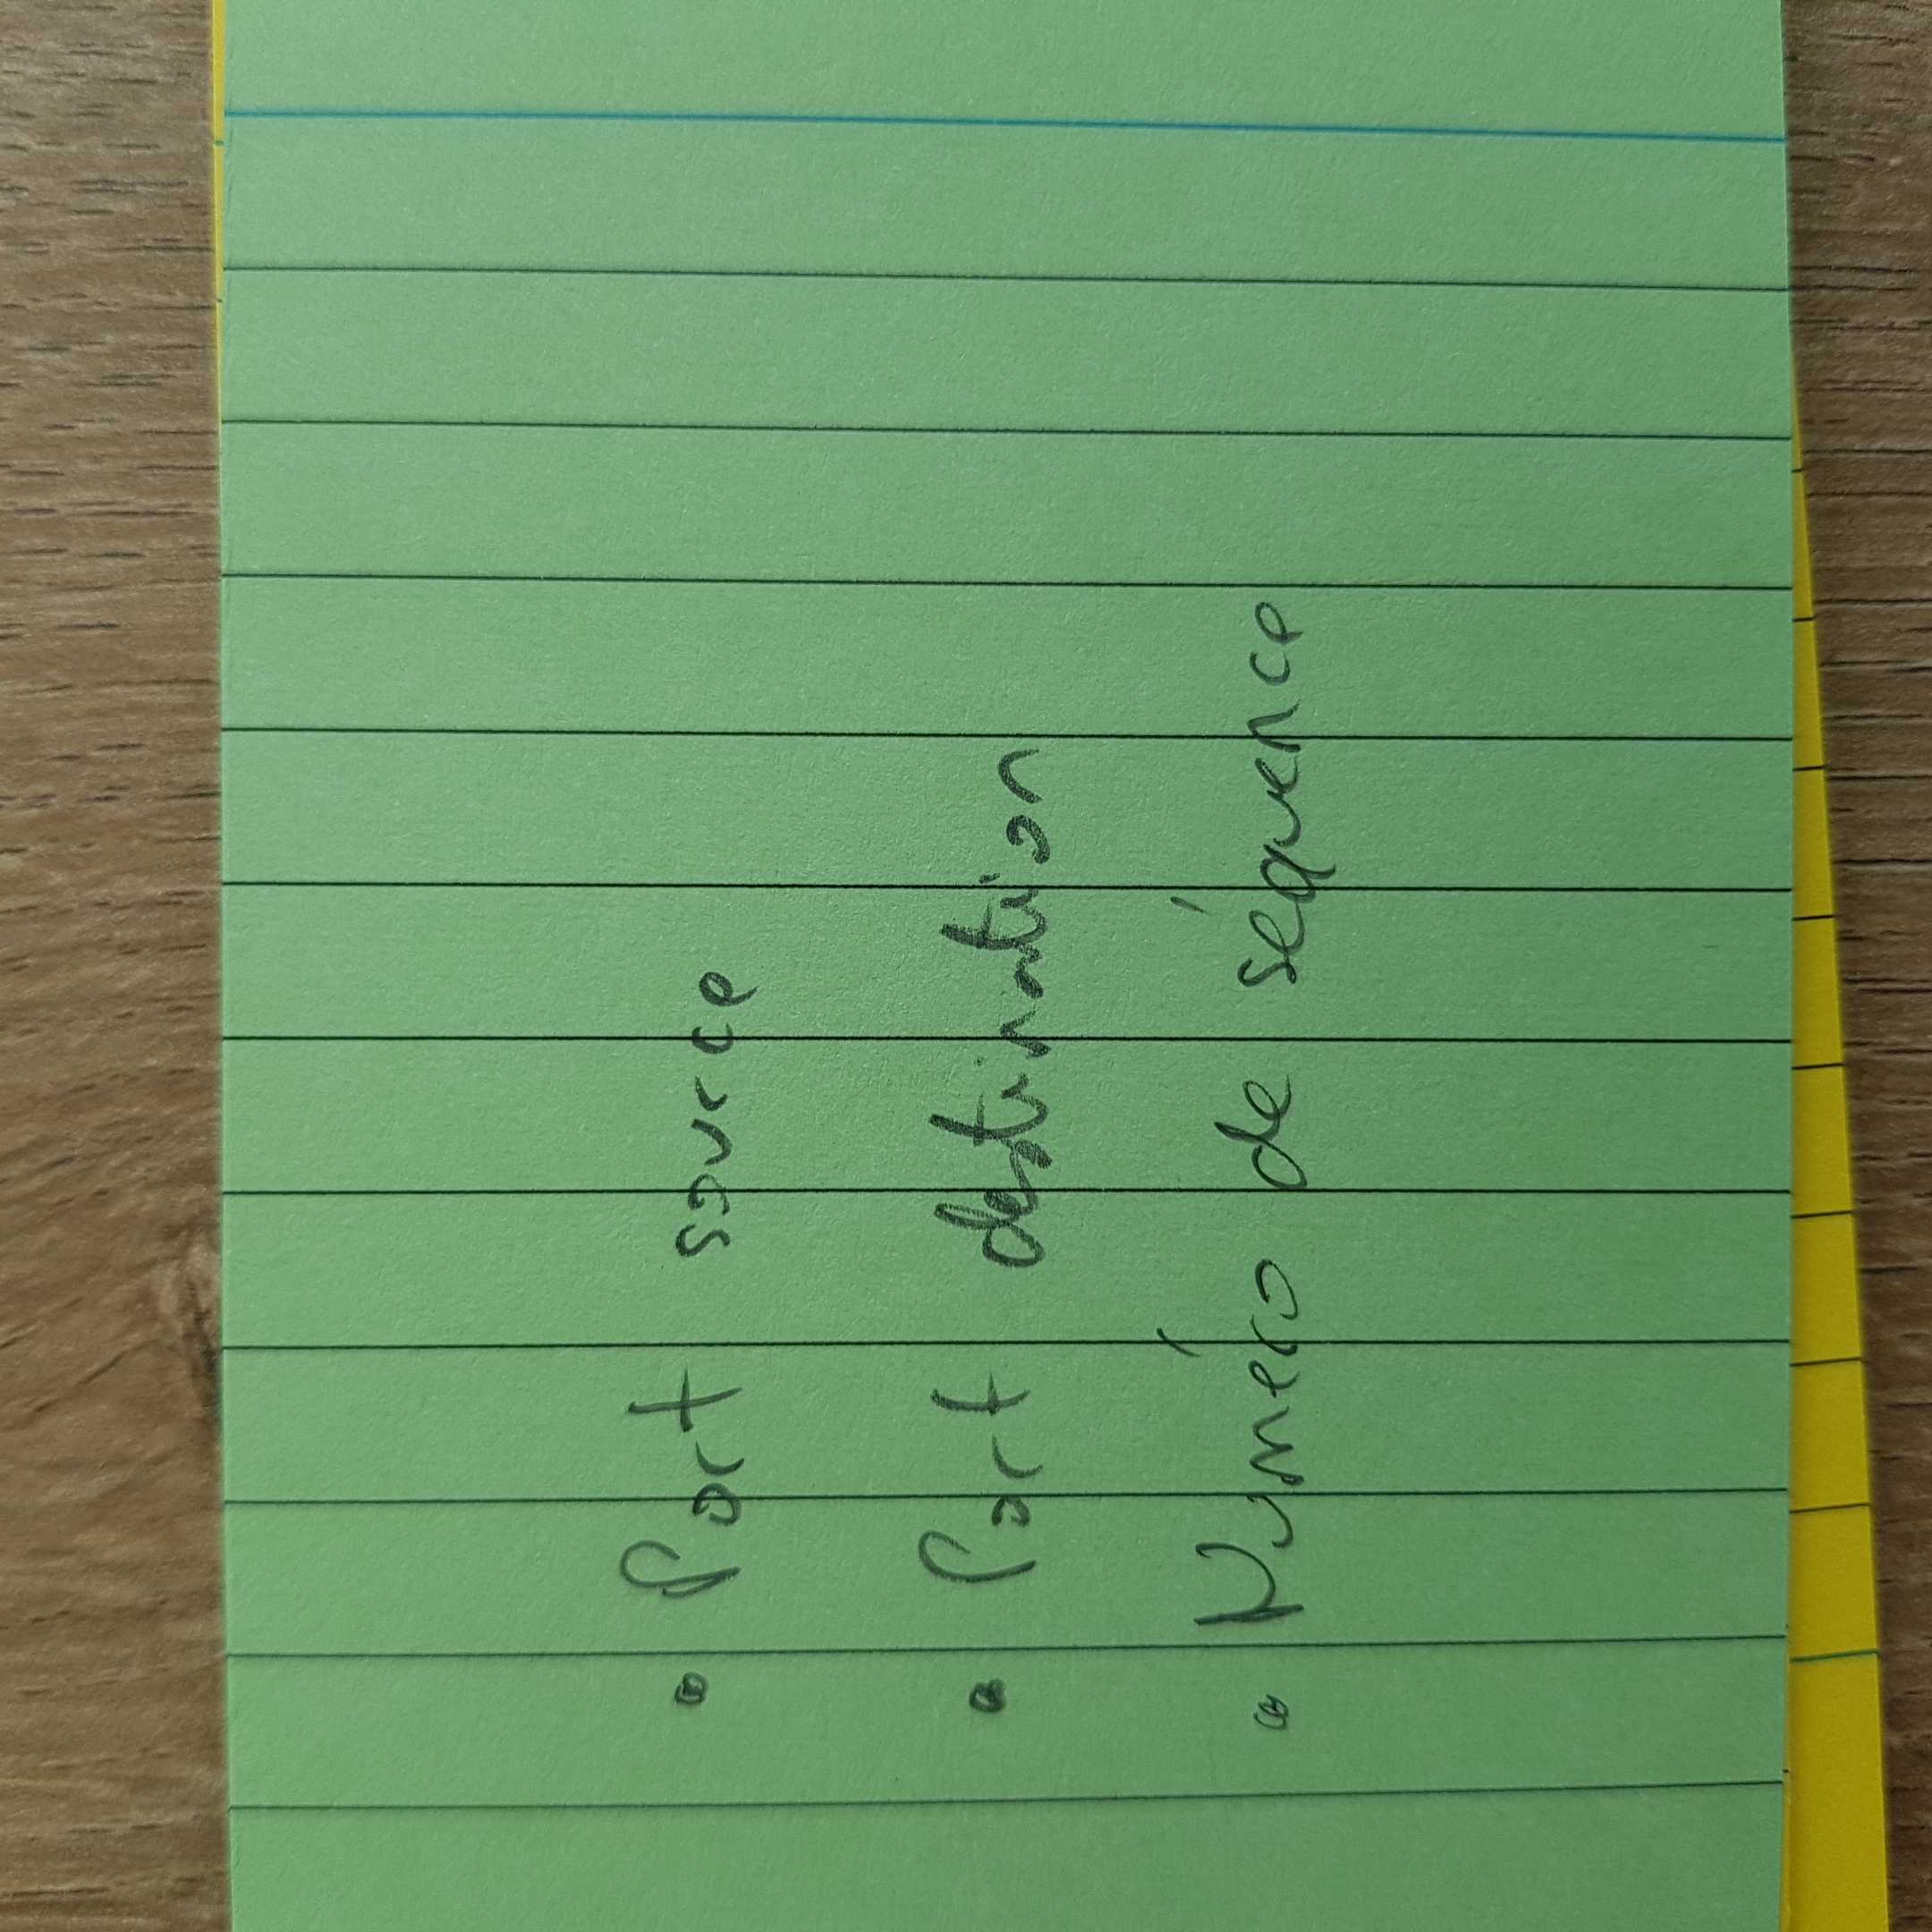 • Port source
• Port destination
• Numéro de séquence